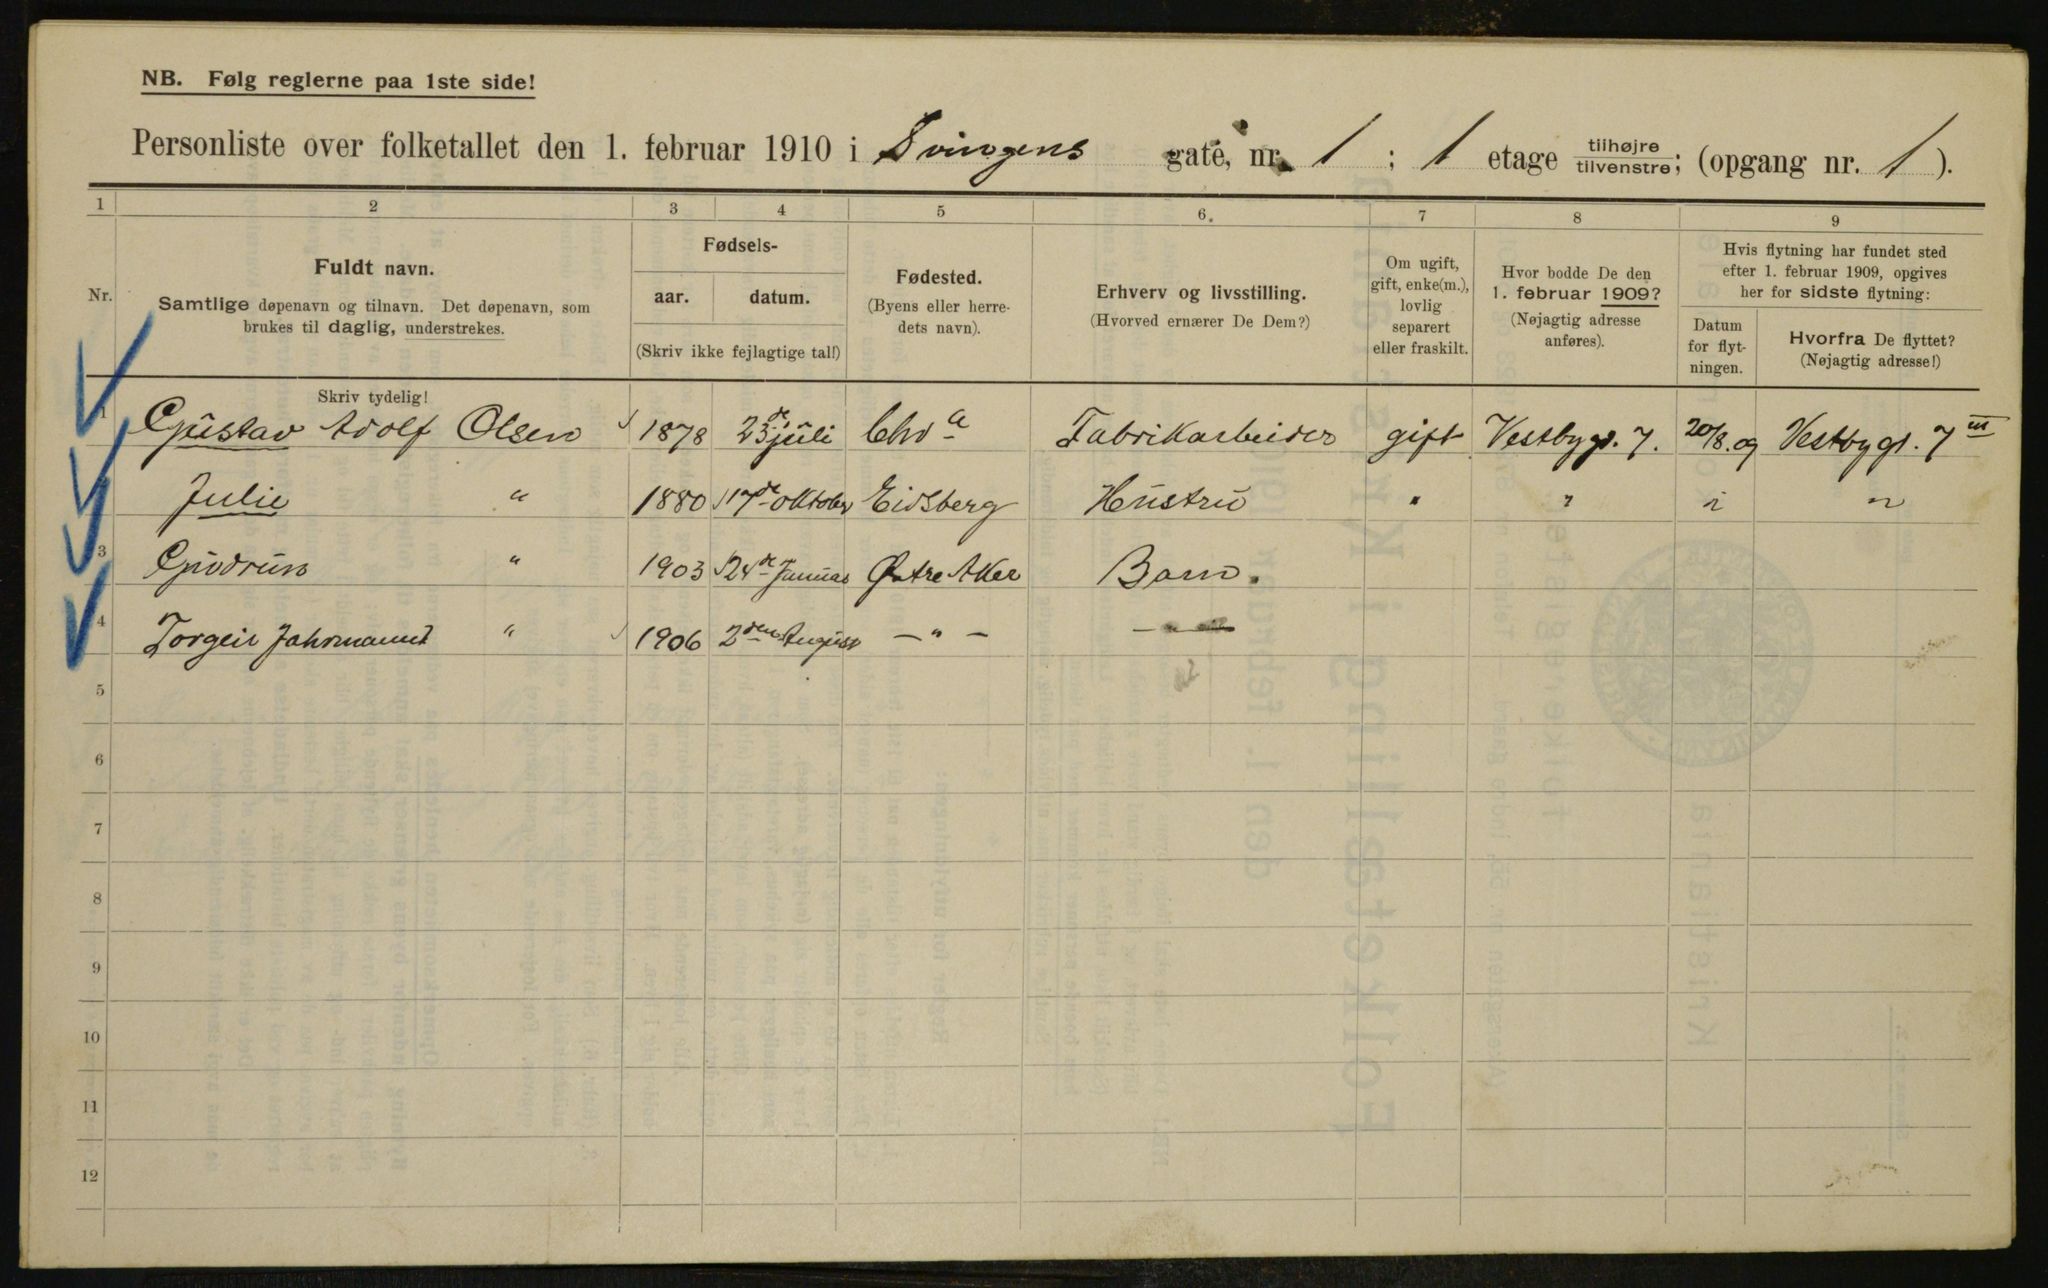 NB. Følg reglerne paa 1ste side!
Personliste over folketallet den 1. februar 1910 i Svingens gate, nr. 1 ; 1 etage tilhøjre tilvenstre ; (opgang nr. 1 ).
1 2 3 4 5 6. 7 8 9
Nr.
Fuldt navn.
Samtlige døpenavn og tilnavn. Det døpenavn, som
brukes til daglig, understrekes.
Skriv tydelig!
Fødsels-
aar. datum.
(Skriv ikke fejlagtige tal!)
Fødested.
(Byens eller herre-
dets navn).
Erhverv og livsstilling.
(Hvorved ernærer De Dem?)
Om ugift,
gift, enke(m.),
lovlig
separert
eller fraskilt.
Hvor bodde De den
1. februar 1909?
(Nøjagtig adresse
anføres).
Hvis flytning har fundet sted
efter 1. februar 1909, opgives
her for sidste flytning:
Datum
for flyt-
ningen.
Hvorfra De flyttet?
(Nøjagtig adresse!)
1 Gustav Adolf Olsen 1878 23de juli Chra Fabrikarbeider gift Vestbygt. 7. 20/8. 09 Vestbygt. 7 III
Julie " 1880 17de oktober Eidsberg Hustru " " " "
3 Gudrun " 1903 24de Januar Østre Aker Barn.
4 Torgeir " 1906 2den August — " — — " —
5
6
7
8
9
10
11
12